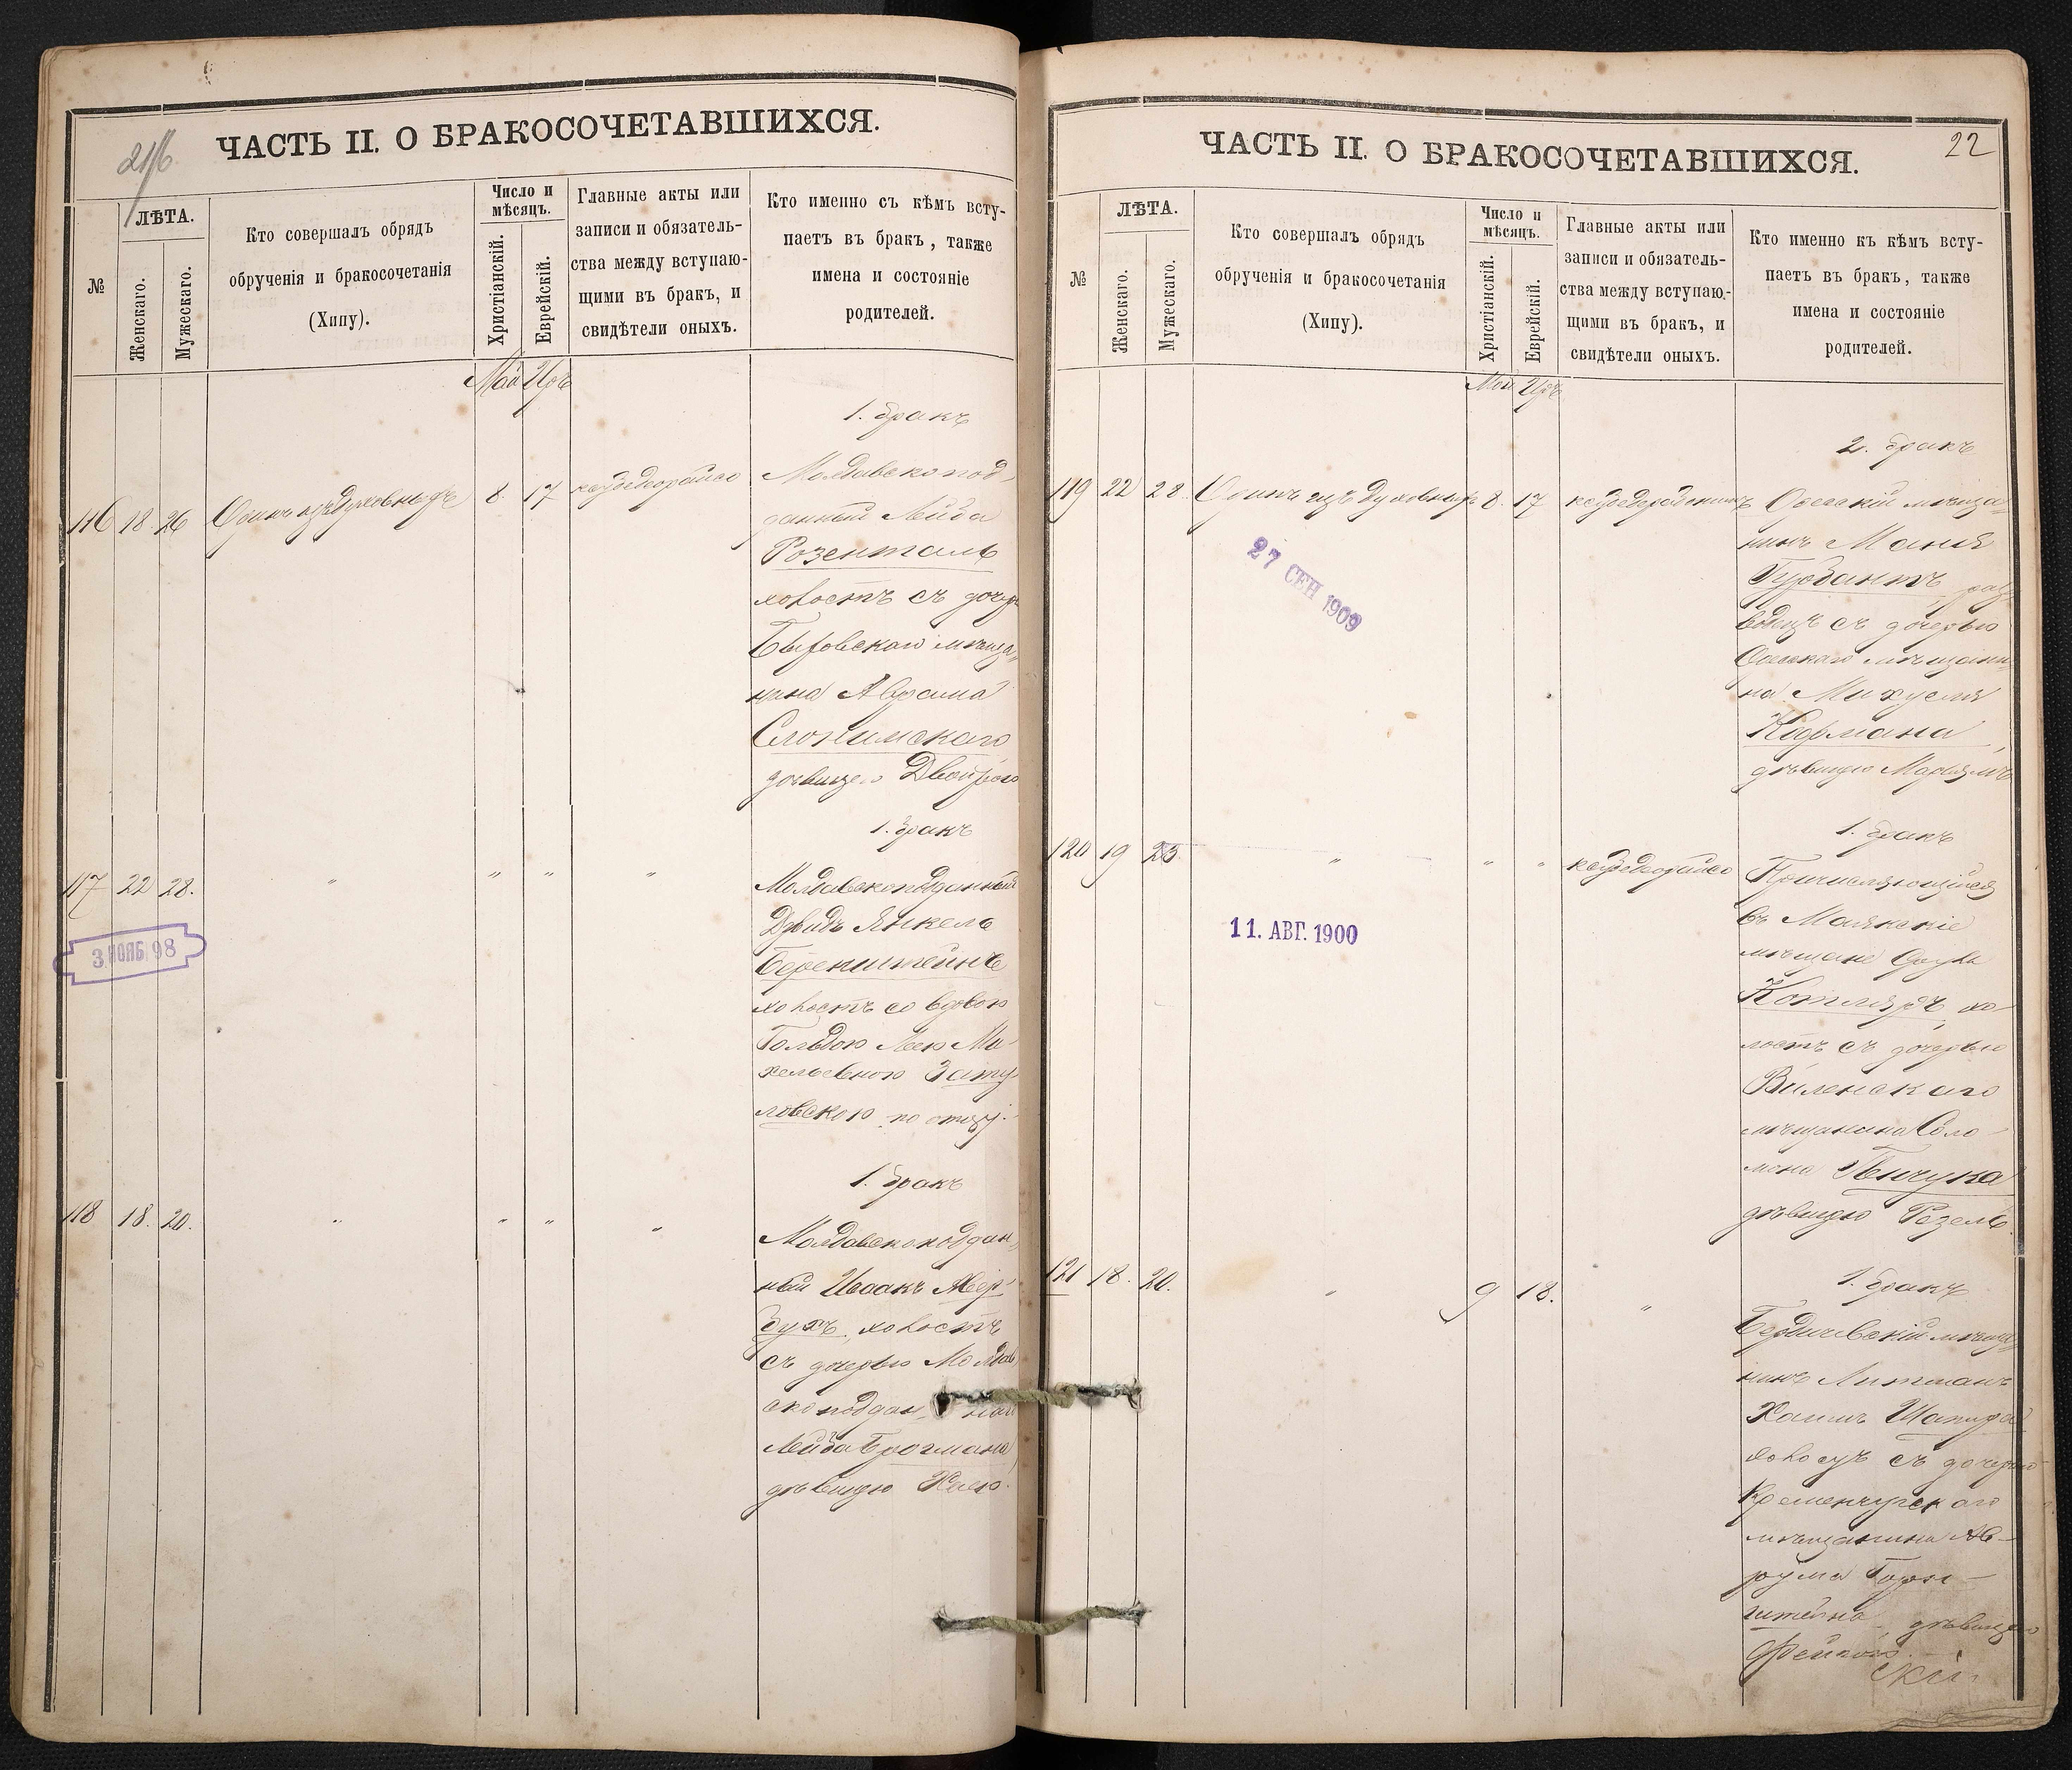 21/16
ЧАСТЬ II. О БРАКОСОЧЕТАВШИХСЯ.
№
ЛѢТА.
Женскаго.
Мужескаго.
Кто совершалъ обрядъ
обрученія и бракосочетанія
(Хипу).
Число и
мѣсяцъ.
Христіанскій.
Еврейскій.
Главные акты или
записи и обязатель-
ства между вступаю-
щими въ бракъ, и
свидѣтели оныхъ.
Кто именно съ кѣмъ всту-
паетъ въ бракъ, также
имена и состояніе
родителей.
Май Іръ
1. бракъ
116 18 26 Одинъ изъ духовныхъ 8. 17
Молдавскопод-
данный Лейба
Розенталь
холостъ съ дочер
мѣща-
нина Аврама
Слонимскаго
дѣвицею Двойрою
1. бракъ
117 22 28. " " " "
Молдавскоподданный
Давидъ Янкель
Беренштейнъ
холостъ со вдовою
Гольдою Леею Ми-
хелевною Зату-
ловскою по отцу.
3. НОЯБ. 98
1. бракъ
118 18. 20. " " " "
Молдавскоподдан-
ный Исаакъ Мер-
зухъ, холостъ
съ дочерью Молдав
скоподдан
Лейба Брогмана,
дѣвицею Хаею.
22
ЧАСТЬ II. О БРАКОСОЧЕТАВШИХСЯ.
№
ЛѢТА.
Женскаго.
Мужескаго.
Кто совершалъ обрядъ
обрученія и бракосочетанія
(Хипу).
Число и
мѣсяцъ.
Христіанскій.
Еврейскій.
Главные акты или
записи и обязатель-
ства между вступаю-
щими въ бракъ, и
свидѣтели оныхъ.
Кто именно къ кѣмъ всту-
паетъ въ бракъ, также
имена и состояніе
родителей.
Май Іръ
2. бракъ
119 22 28. Одинъ изъ духовныхъ 8. 17
Одесскій мѣща-
нинъ Маня
Гурбантъ, раз-
водецъ съ дочерью
Одесскаго мѣщани-
на Михуеля
Кофмана,
дѣвицею Маріямъ
27 СЕН 1909
1. бракъ
120 19 25. " " "
Причисляющійся
въ Маякскіе
мѣщане
Котляръ хо-
лостъ съ дочерью
Виленскаго
мѣщанина Соло-
мона Пинчука
дѣвицею Резель.
11. АВГ. 1900
1. бракъ
121 18. 20. " 9 18. "
Бердичевскій мѣща-
нинъ Литманъ
Хаимъ Шапира
холостъ съ дочерью
Кременчугскаго
мѣщанина Ав-
рума Горн-
штейна дѣвицею
Фейгою.